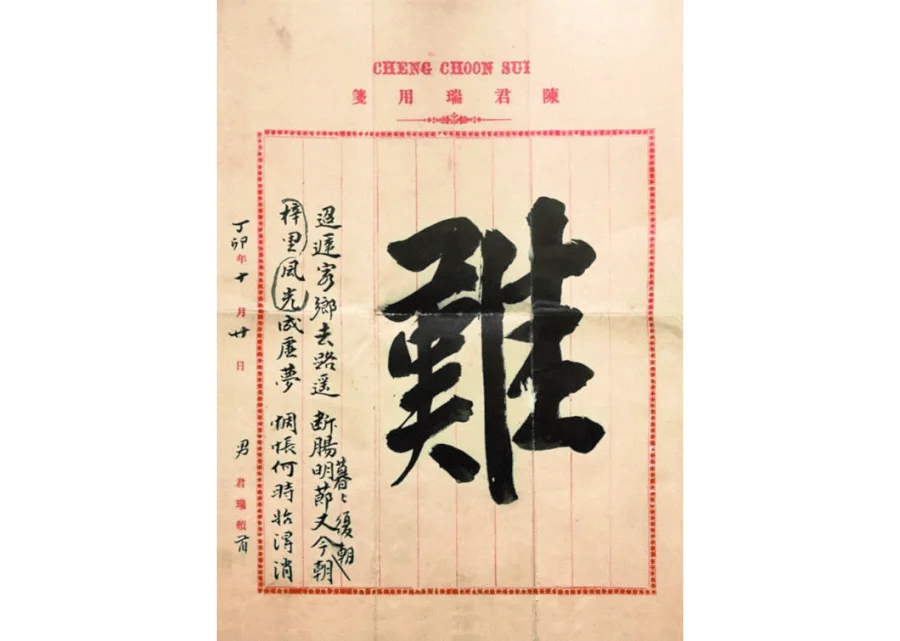 CHENG CHOON SUI
陳君瑞用箋
難
迢遞客鄉去路遥 断腸明節又今朝
暮〻復朝
梓里風光成虛夢 惆悵何時始得消
丁卯年十月廿日 男君瑞頓首